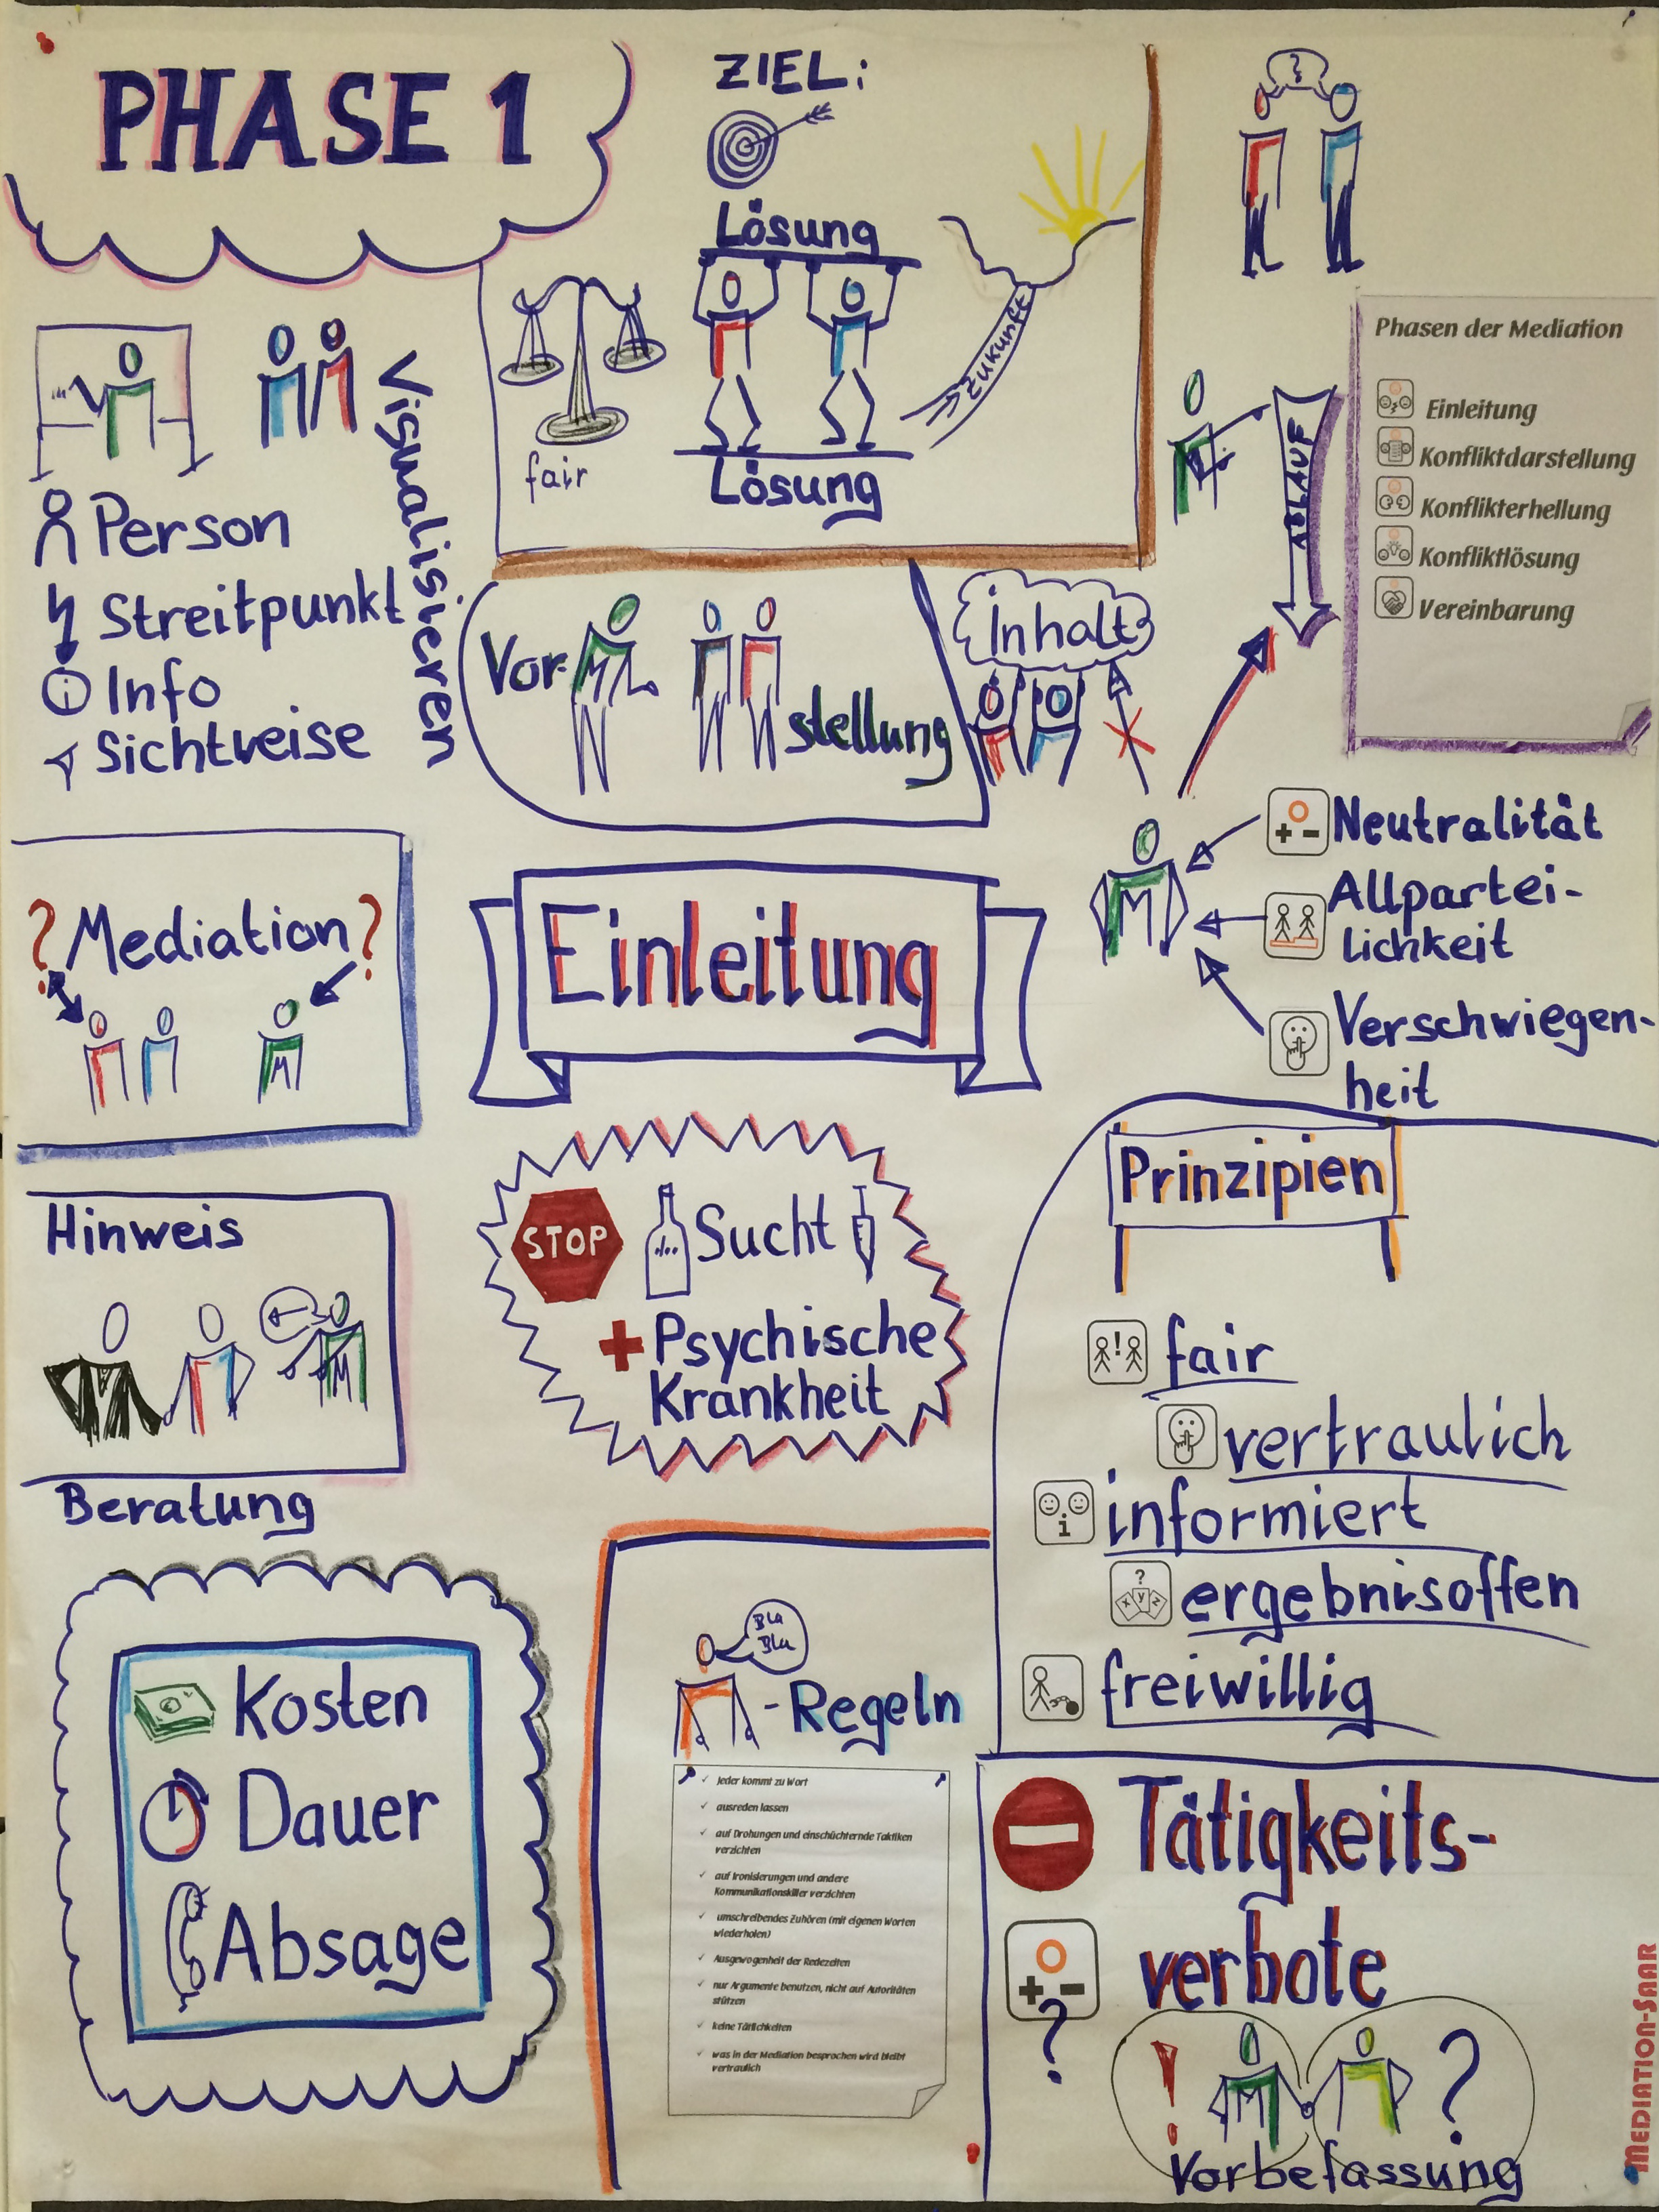 PHASE 1
ZIEL:
Lösung
fair
Lösung
Zukunft
?
Phasen der Mediation
Einleitung
Konfliktdarstellung
Konflikterhellung
Konfliktlösung
Vereinbarung
ABLAUF
Visualisieren
Person
Streitpunkt
Info
Sichtweise
Vor-
M
stellung
Inhalt
M
Neutralität
Allpartei-
lichkeit
Verschwiegen-
heit
? Mediation ?
M
Einleitung
Hinweis
M
Beratung
STOP
Sucht
+ Psychische
Krankheit
Prinzipien
fair
vertraulich
informiert
ergebnisoffen
freiwillig
Kosten
Dauer
Absage
Bla
Bla
-Regeln
✓ Jeder kommt zu Wort
✓ ausreden lassen
✓ auf Drohungen und einschüchternde Taktiken
verzichten
✓ auf Ironisierungen und andere
Kommunikationskiller verzichten
✓ umschreibendes Zuhören (mit eigenen Worten
wiederholen)
✓ Ausgewogenheit der Redezeiten
✓ nur Argumente benutzen, nicht auf Autoritäten
stützen
✓ keine Tätlichkeiten
✓ was in der Mediation besprochen wird bleibt
vertraulich
Tätigkeits-
verbote
?
! M ?
Vorbefassung
MEDIATION-SAAR